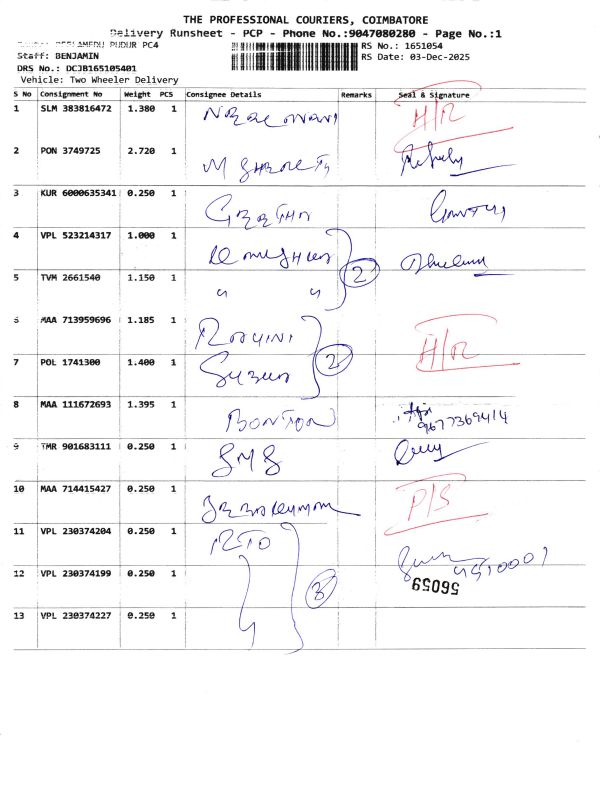 THE PROFESSIONAL COURIERS, COIMBATORE
Delivery Runsheet - PCP - Phone No.:9047080280 - Page No.:1
PUDUR PC4
RS No.: 1651054
Staff: BENJAMIN
RS Date: 03-Dec-2025
DRS No.: DCJB165105401
Vehicle: Two Wheeler Delivery
S No Consignment No Weight PCS Consignee Details Remarks Seal & Signature
1 SLM 383816472 1.380 1 H/R
2 PON 3749725 2.720 1
3 KUR 6000635341 0.250 1
4 VPL 523214317 1.000 1
2
5 TVM 2661540 1.150 1 " "
6 MAA 713959696 1.185 1 H/R
2
7 POL 1741300 1.400 1
8 MAA 111672693 1.395 1 BONTON
9677369414
9 TMR 901683111 0.250 1 SMS
10 MAA 714415427 0.250 1 P/S
11 VPL 230374204 0.250 1 RTO
12 VPL 230374199 0.250 1 3
56059
13 VPL 230374227 0.250 1